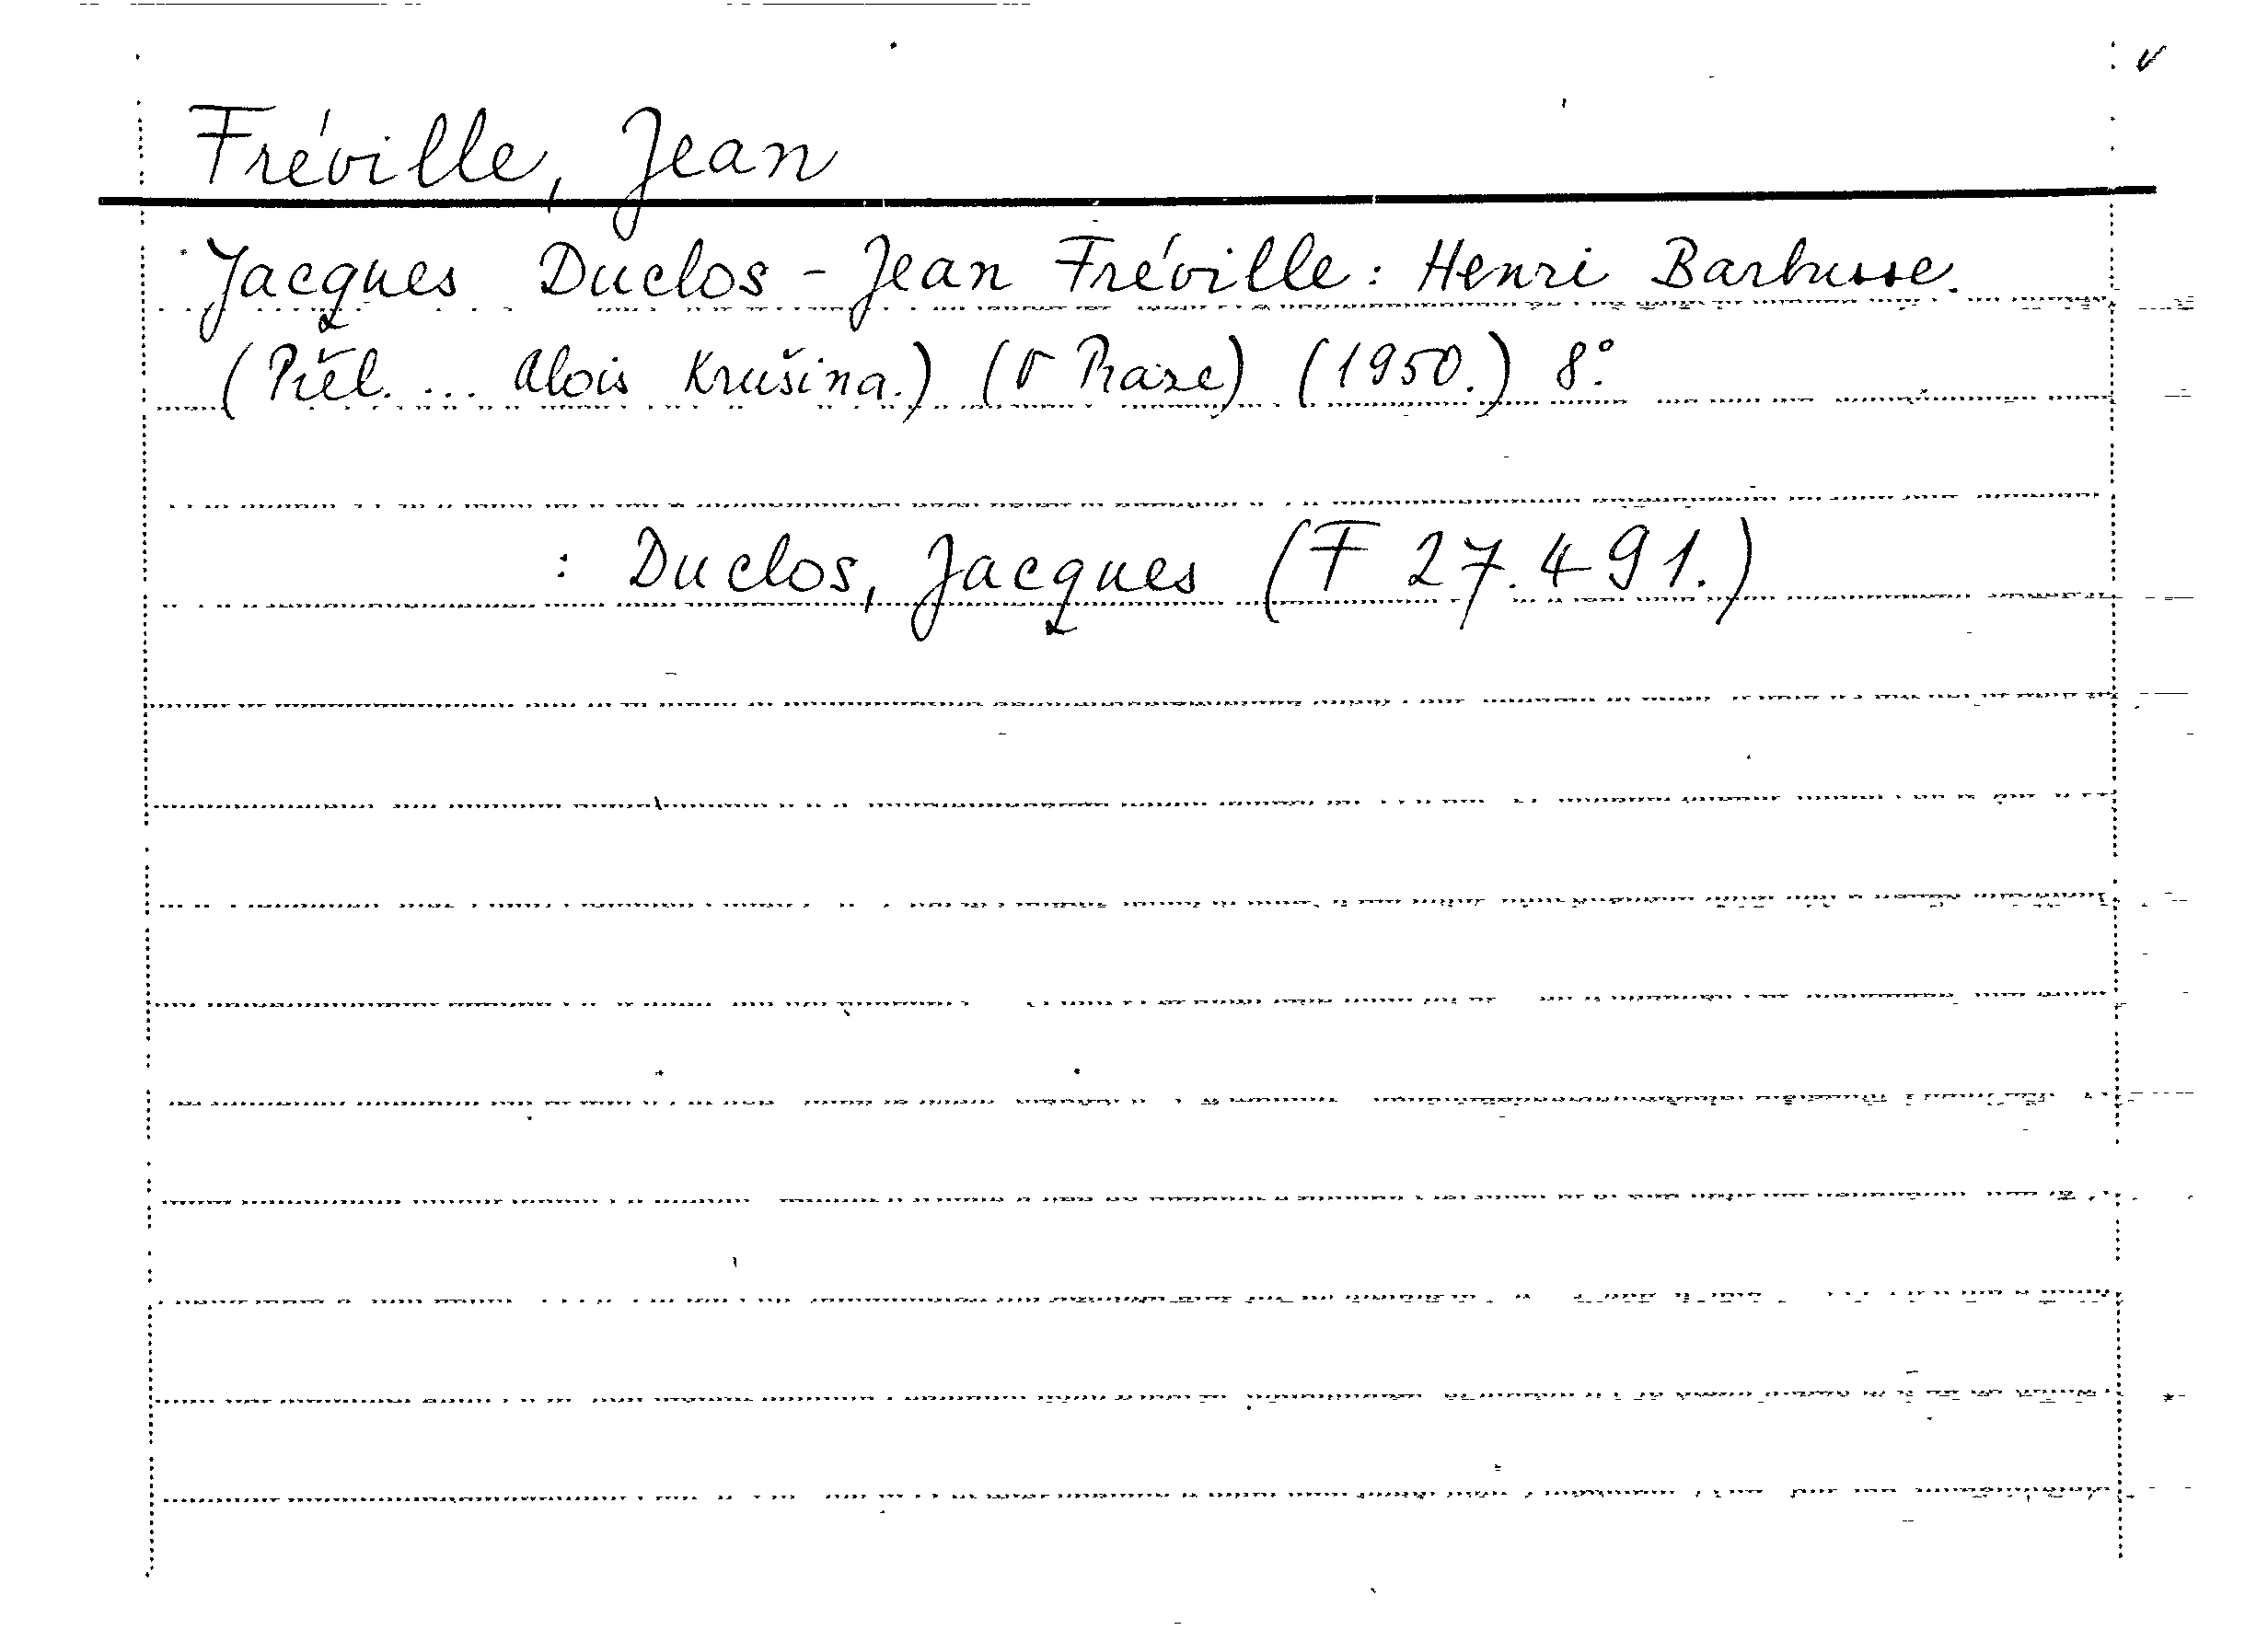 Fréville, Jean
Jacques Duclos - Jean Fréville: Henri Barbusse.
(Přel. ... Alois Krušina.) (V Praze) (1950.) 8°.
: Duclos, Jacques (F 27.491.)